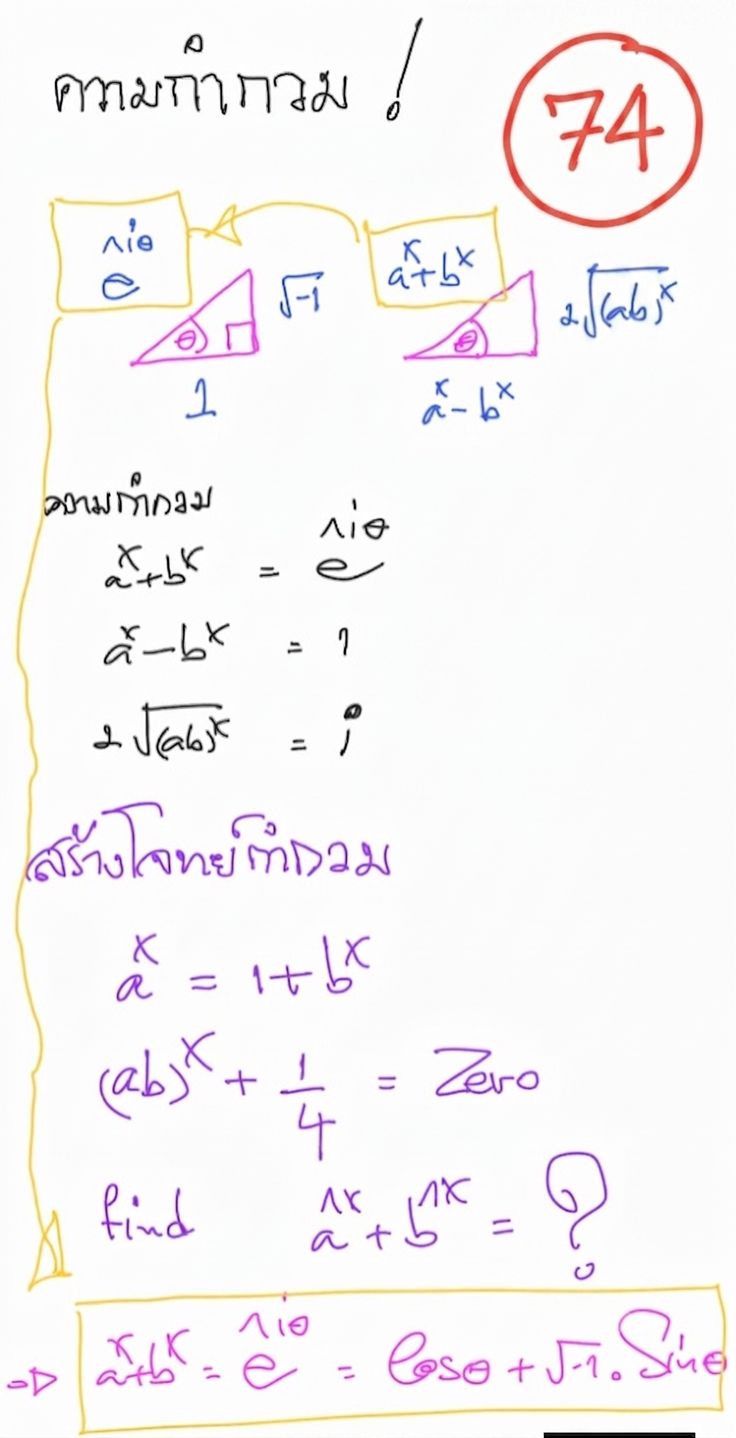 ความกำกวม !
74
^iθ
e
√-1
1
θ
a^x+b^x
2√(ab)^x
a^x-b^x
θ
ความกำกวม
a^x+b^x = e^^iθ
a^x-b^x = 1
2√(ab)^x = i
สร้างโจทย์กำกวม
a^x = 1+b^x
(ab)^x + 1/4 = Zero
find a^^x + b^^x = ?
⇒ a^x+b^x = e^^iθ = Cosθ + √-1 . Sinθ